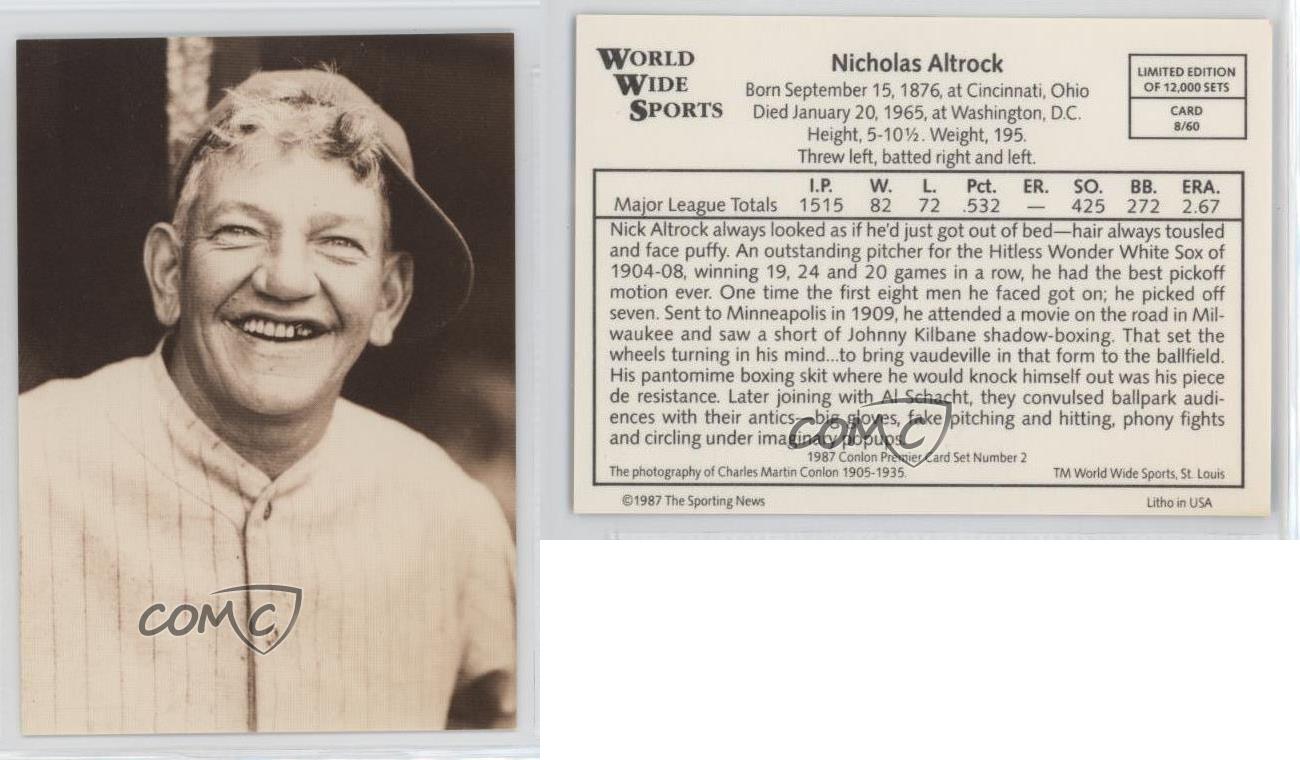 COMC
WORLD
WIDE
SPORTS
Nicholas Altrock
Born September 15, 1876, at Cincinnati, Ohio
Died January 20, 1965, at Washington, D.C.
Height, 5-10½. Weight, 195.
Threw left, batted right and left.
LIMITED EDITION
OF 12,000 SETS
CARD
8/60
I.P. W. L. Pct. ER. SO. BB. ERA.
Major League Totals 1515 82 72 .532 — 425 272 2.67
Nick Altrock always looked as if he'd just got out of bed—hair always tousled
and face puffy. An outstanding pitcher for the Hitless Wonder White Sox of
1904-08, winning 19, 24 and 20 games in a row, he had the best pickoff
motion ever. One time the first eight men he faced got on; he picked off
seven. Sent to Minneapolis in 1909, he attended a movie on the road in Mil-
waukee and saw a short of Johnny Kilbane shadow-boxing. That set the
wheels turning in his mind...to bring vaudeville in that form to the ballfield.
His pantomime boxing skit where he would knock himself out was his piece
de resistance. Later joining with Al Schacht, they convulsed ballpark audi-
ences with their antics—big gloves, fake pitching and hitting, phony fights
and circling under imaginary popups.
COMC
1987 Conlon Premier Card Set Number 2
The photography of Charles Martin Conlon 1905-1935. TM World Wide Sports, St. Louis
©1987 The Sporting News Litho in USA